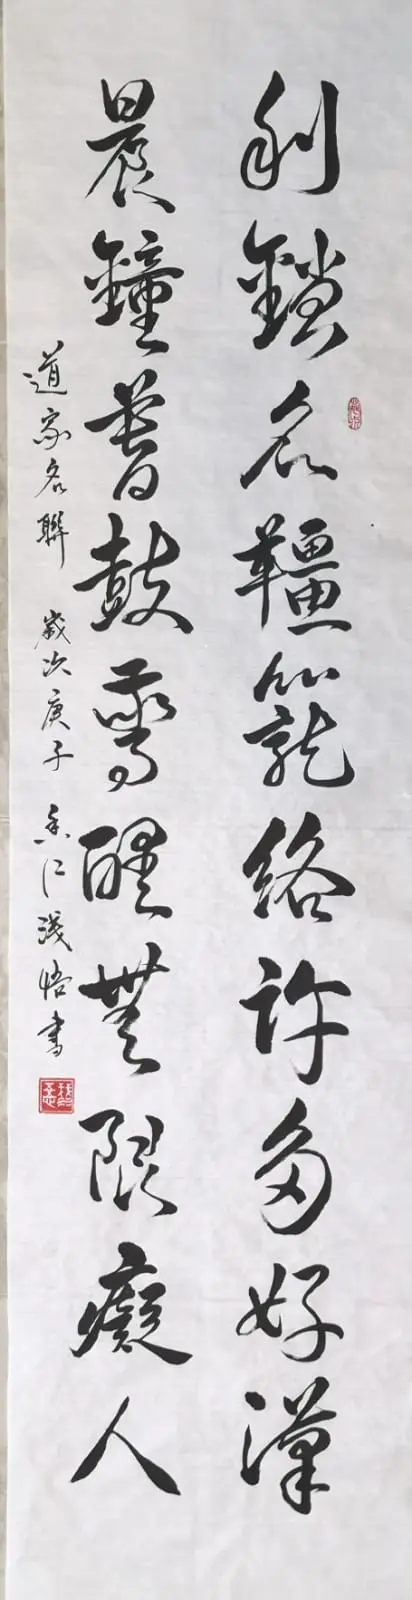 利鎖名韁籠絡許多好漢
晨鐘暮鼓驚醒無限癡人
道家名聯 歲次庚子 淺悟書